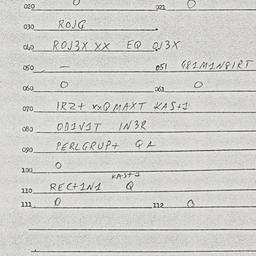 020 0 021 0
030 ROJG
040 ROJ3X XX EQ QJ3X
050 — 051
060 0 061 0
070 IRZ+ XXQMAXT KAS+1
080 OD1V1T IN3R
090 PERLGRUP+ Q
100 0
KAS+1
110 REC+1N1 Q
111 0 112 0